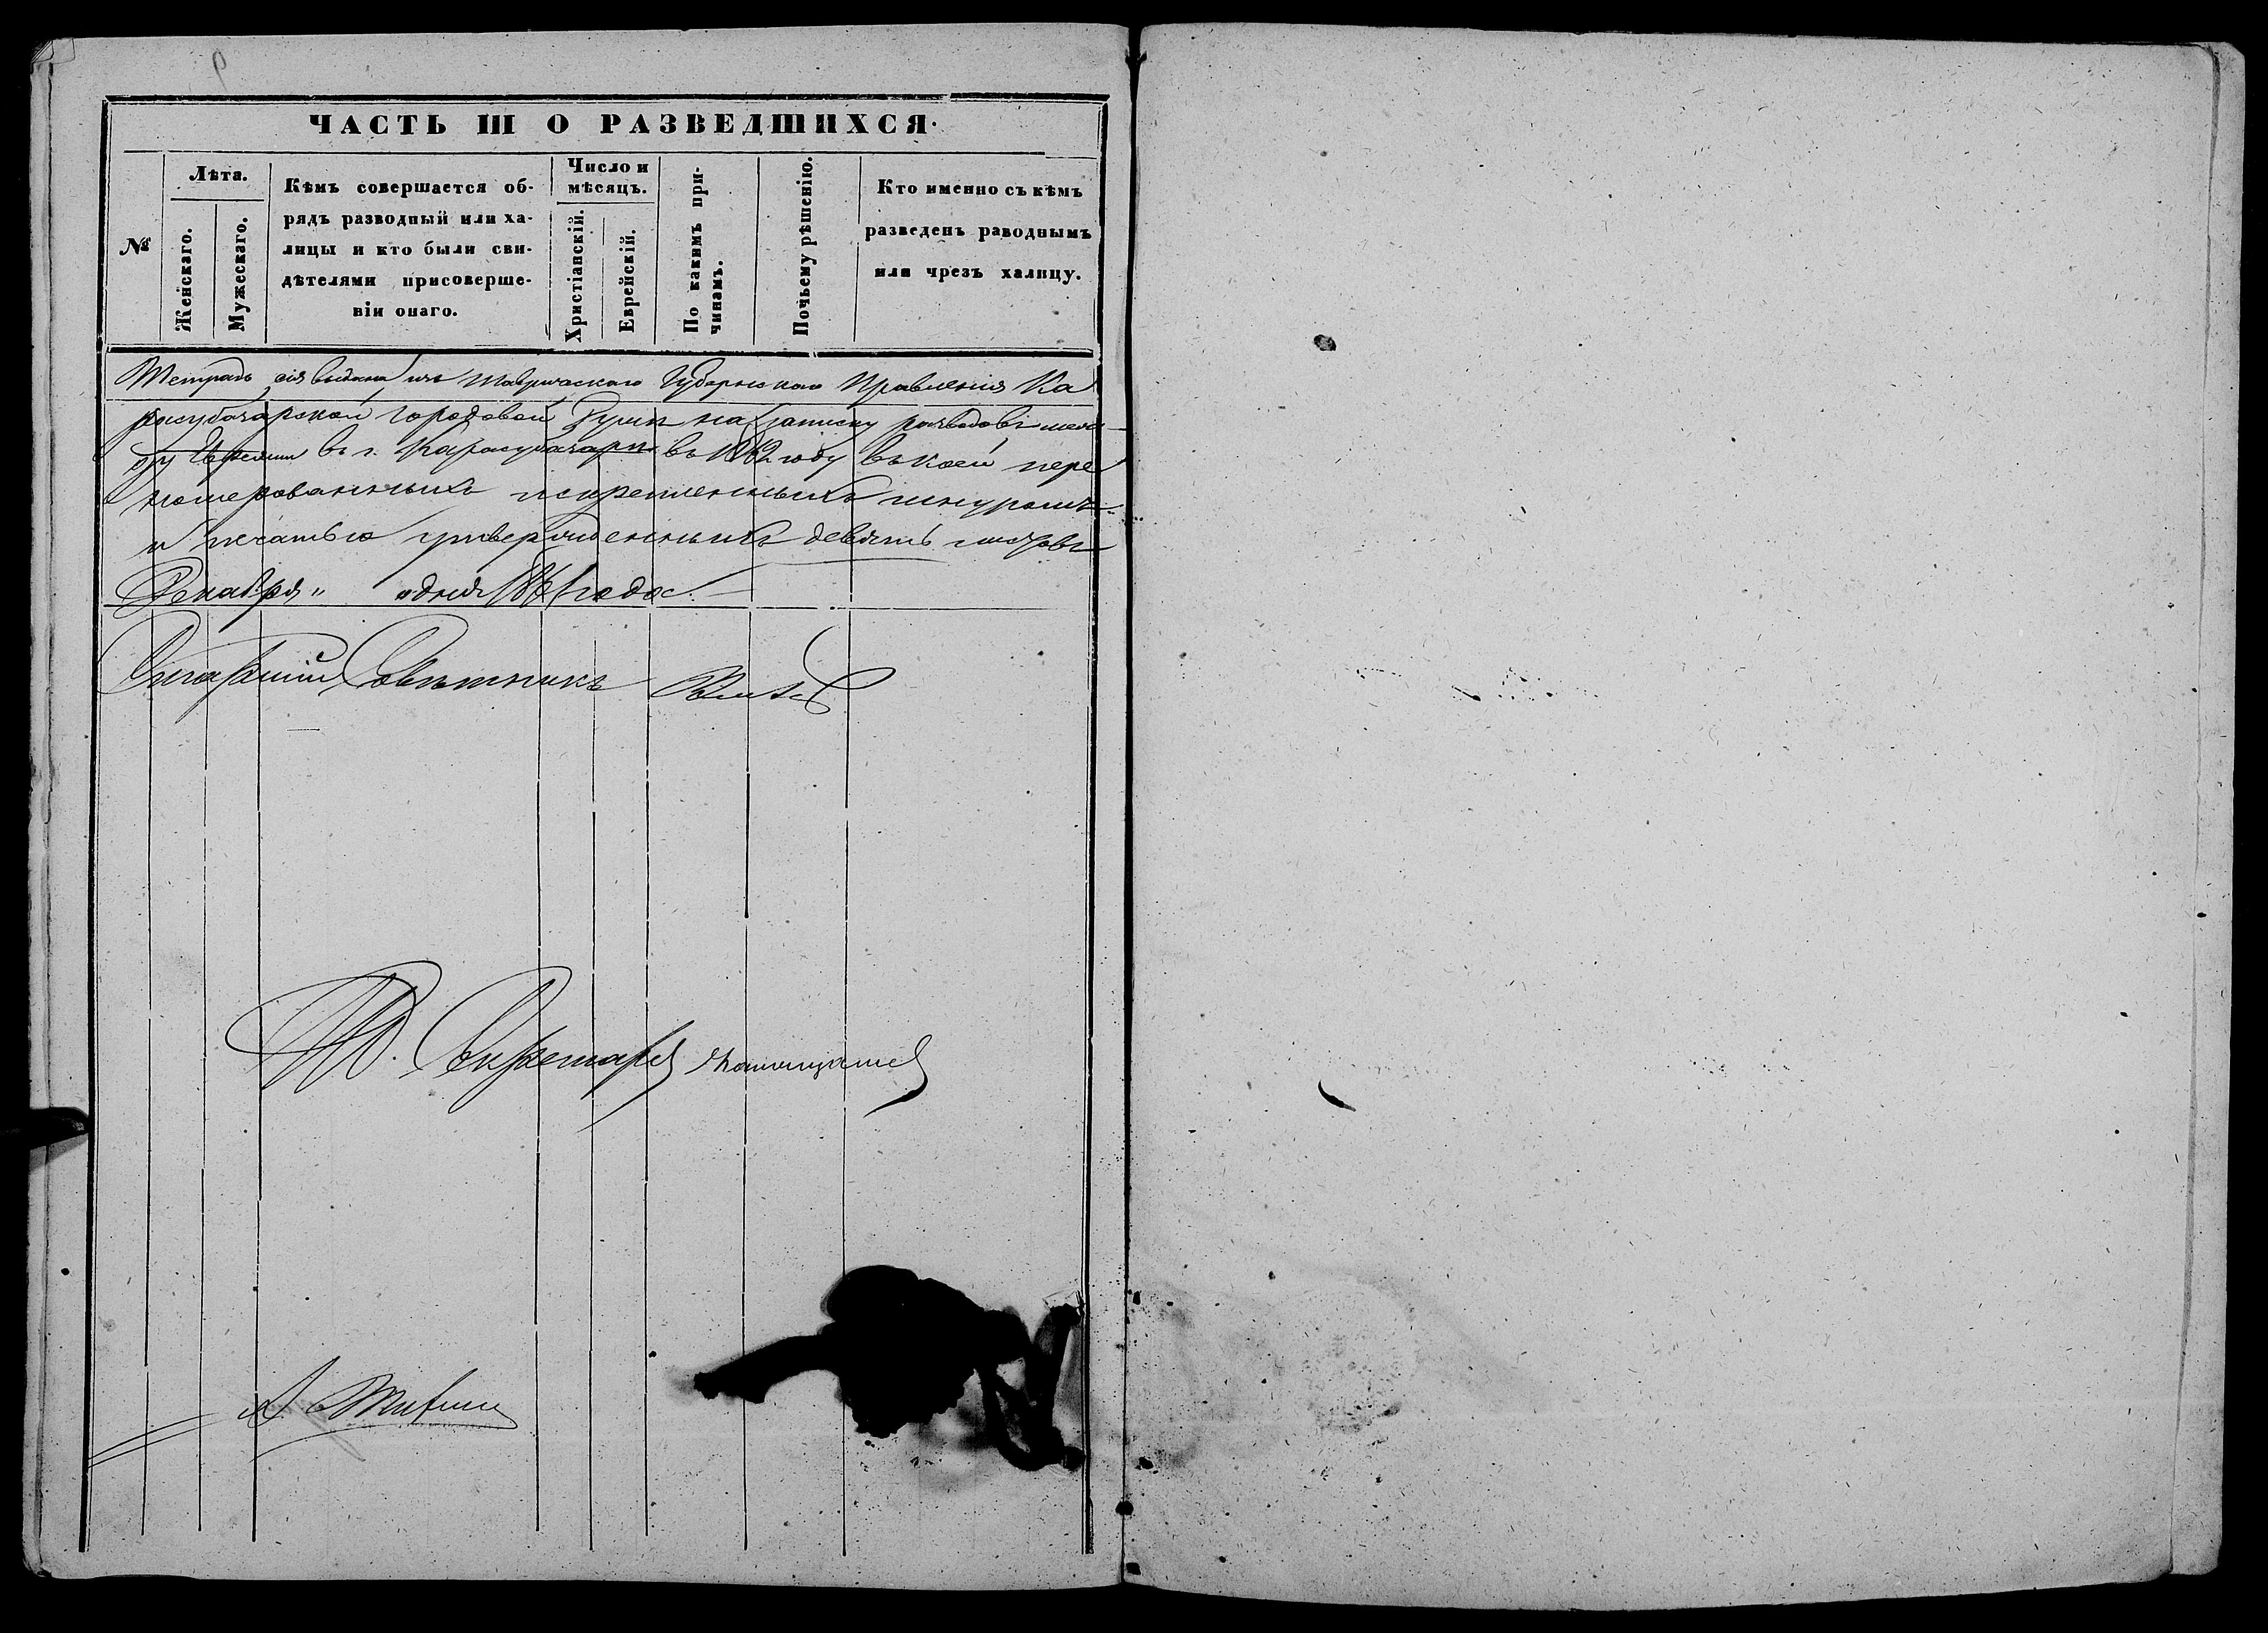 ЧАСТЬ III О РАЗВЕДШИХСЯ.
№
Лѣта.
Женскаго.
Мужескаго.
Кѣмъ совершается об-
рядъ разводный или ха-
лицы и кто были сви-
дѣтелями присоверше-
ніи онаго.
Число и
мѣсяцъ.
Христіанскій.
Еврейскій.
По какимъ при-
чинамъ.
Почьему рѣшенію.
Кто именно съ кѣмъ
разведенъ раводнымъ
или чрезъ халицу.
Тетрадь сія выдана изъ Таврическаго Губернскаго Правленія Ка
расубазарской Городовой Думѣ на записку разводовъ меж
ду Евреями въ г. Карасубазарѣ въ 1862 году въ коей пере
номерованныхъ и скрепленныхъ шнуромъ
и печатью утвержденныхъ девять листовъ
Декабря " " дня 1861 года.
Старшій Совѣтникъ
И.Д. Секретаря